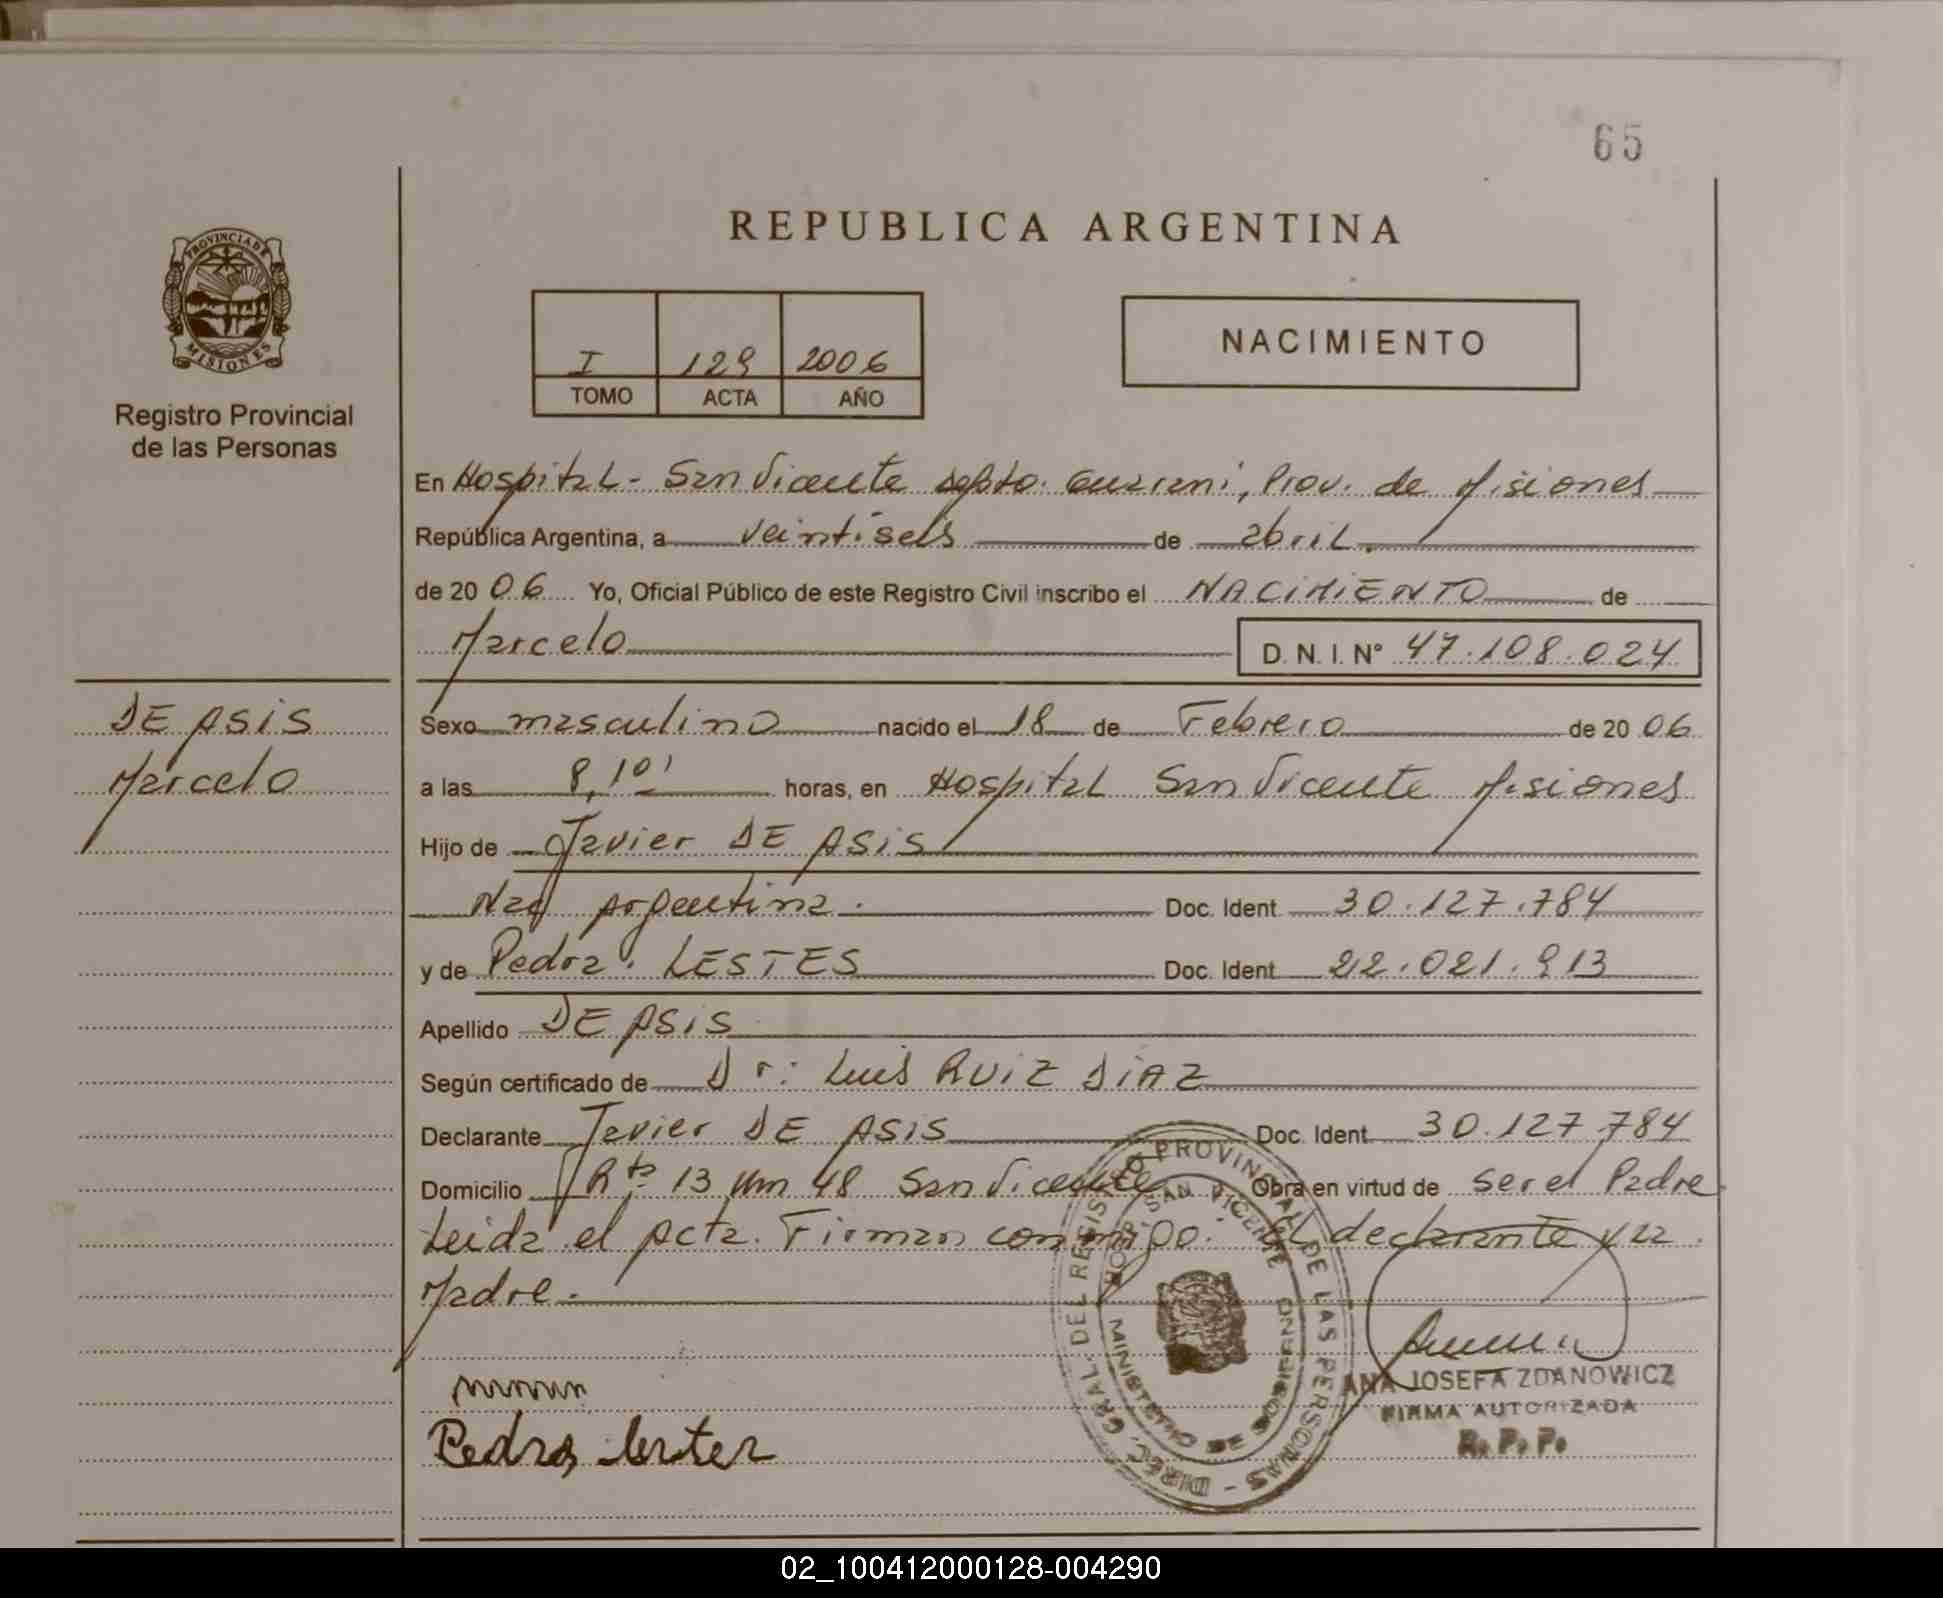 65
REPUBLICA ARGENTINA
PROVINCIA DE
MISIONES
Registro Provincial
de las Personas
I 129 2006
TOMO ACTA AÑO
NACIMIENTO
En Hospital - San Vicente depto. Guarani, Prov. de Misiones
República Argentina, a veintiseis de abril.
de 20 06 Yo, Oficial Público de este Registro Civil inscribo el NACIMIENTO de
Marcelo D.N.I. N° 47.108.024
DE ASIS
Marcelo
Sexo masculino nacido el 18 de Febrero de 20 06
a las 8,10' horas, en Hospital San Vicente Misiones
Hijo de Javier DE ASIS
Nac argentina. Doc. Ident. 30.127.784
y de Pedra. LESTES Doc. Ident. 22.021.913
Apellido DE ASIS
Según certificado de Dr: Luis RUIZ DIAZ
Declarante Javier DE ASIS Doc. Ident. 30.127.784
Domicilio Rta 13 Km 48 San Vicente Obra en virtud de ser el Padre
Leida el Acta. Firman conmigo. el declarante y la
Madre.
DIREC. GRAL. DEL REGISTRO PROVINCIAL DE LAS PERSONAS
HOSP. SAN VICENTE
MINISTERIO DE GOBIERNO
ANA JOSEFA ZDANOWICZ
FIRMA AUTORIZADA
R. P. P.
Pedra lester
02_100412000128-004290